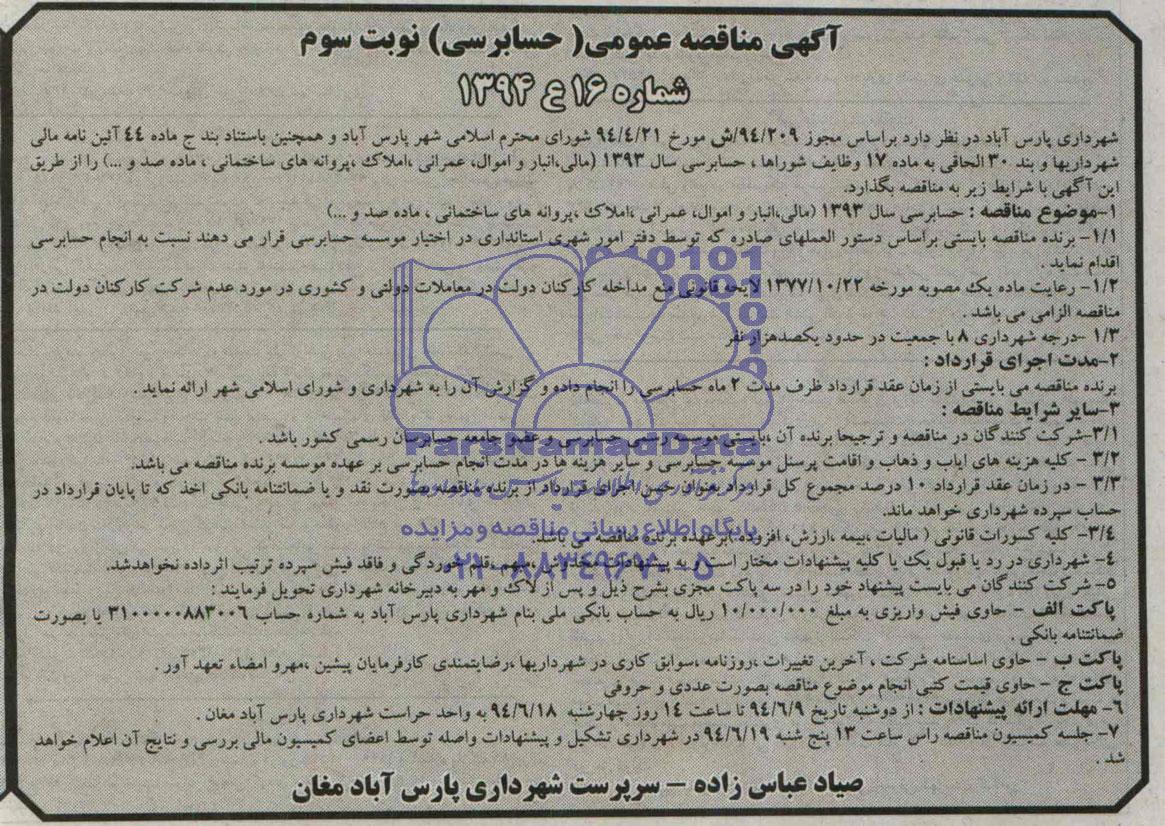 آگهی مناقصه عمومی( حسابرسی) نوبت سوم
شماره ۱۶ ع ۱۳۹۴
شهرداری پارس آباد در نظر دارد براساس مجوز ۹۴/۲۰۹/ش مورخ ۹٤/٤/۲۱ شورای محترم اسلامی شهر پارس آباد و همچنین باستناد بند ج ماده ٤٤ آئین نامه مالی
شهرداریها و بند ۳۰ الحاقی به ماده ۱۷ وظایف شوراها ، حسابرسی سال ۱۳۹۳ (مالی،انبار و اموال، عمرانی ،املاک ،پروانه های ساختمانی ، ماده صد و ...) را از طریق
این آگهی با شرایط زیر به مناقصه بگذارد.
۱-موضوع مناقصه : حسابرسی سال ۱۳۹۳ (مالی،انبار و اموال، عمرانی ،املاک ،پروانه های ساختمانی ، ماده صد و ...)
۱/۱- برنده مناقصه بایستی براساس دستور العملهای صادره که توسط دفتر امور شهری استانداری در اختیار موسسه حسابرسی قرار می دهند نسبت به انجام حسابرسی
اقدام نماید .
۱/۲- رعایت ماده یک مصوبه مورخه ۱۳۷۷/۱۰/۲۲ لایحه قانونی منع مداخله کارکنان دولت در معاملات دولتی و کشوری در مورد عدم شرکت کارکنان دولت در
مناقصه الزامی می باشد .
۱/۳ -درجه شهرداری ۸ با جمعیت در حدود یکصدهزار نفر
۲-مدت اجرای قرارداد :
برنده مناقصه می بایستی از زمان عقد قرارداد ظرف مدت ۲ ماه حسابرسی را انجام داده و گزارش آن را به شهرداری و شورای اسلامی شهر ارائه نماید .
۳-سایر شرایط مناقصه :
۳/۱-شرکت کنندگان در مناقصه و ترجیحا برنده آن ،بایستی موسسه رسمی حسابرسی و عضو جامعه حسابرسان رسمی کشور باشد .
ParsNamadData
۳/۲ - کلیه هزینه های ایاب و ذهاب و اقامت پرسنل موسسه حسابرسی و سایر هزینه ها در مدت انجام حسابرسی بر عهده موسسه برنده مناقصه می باشد.
۳/۳ - در زمان عقد قرارداد ۱۰ درصد مجموع کل قرارداد بعنوان حسن اجرای قرارداد از برنده مناقصه بصورت نقد و یا ضمانتنامه بانکی اخذ که تا پایان قرارداد در
حساب سپرده شهرداری خواهد ماند.
پایگاه اطلاع رسانی مناقصه و مزایده
۳/٤- کلیه کسورات قانونی ( مالیات ،بیمه ،ارزش، افزوده )برعهده برنده مناقصه می باشد.
۰۲۱-۸۸۳۴۹۶۷۰-۵
٤- شهرداری در رد یا قبول یک یا کلیه پیشنهادات مختار است و به پیشنهادات مخدوش ،مبهم ،قلم خوردگی و فاقد فیش سپرده ترتیب اثرداده نخواهدشد.
۵- شرکت کنندگان می بایست پیشنهاد خود را در سه پاکت مجزی بشرح ذیل و پس از لاک و مهر به دبیرخانه شهرداری تحویل فرمایند :
پاکت الف - حاوی فیش واریزی به مبلغ ۱۰/۰۰۰/۰۰۰ ریال به حساب بانکی ملی بنام شهرداری پارس آباد به شماره حساب ۳۱۰۰۰۰۰۸۸۳۰۰۶ یا بصورت
ضمانتنامه بانکی .
پاکت ب - حاوی اساسنامه شرکت ، آخرین تغییرات ،روزنامه ،سوابق کاری در شهرداریها ،رضایتمندی کارفرمایان پیشین ،مهرو امضاء تعهد آور .
پاکت ج - حاوی قیمت کتبی انجام موضوع مناقصه بصورت عددی و حروفی
۶- مهلت ارائه پیشنهادات : از دوشنبه تاریخ ۹٤/٦/۹ تا ساعت ۱٤ روز چهارشنبه ۹٤/٦/۱۸ به واحد حراست شهرداری پارس آباد مغان .
۷- جلسه کمیسیون مناقصه راس ساعت ۱۳ پنج شنبه ۹٤/٦/۱۹ در شهرداری تشکیل و پیشنهادات واصله توسط اعضای کمیسیون مالی بررسی و نتایج آن اعلام خواهد
شد .
صیاد عباس زاده – سرپرست شهرداری پارس آباد مغان